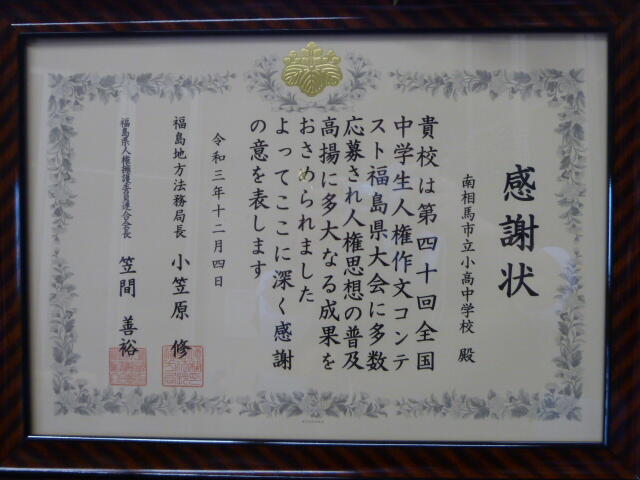 感謝状
南相馬市立小高中学校 殿
貴校は第四十回全国
中学生人権作文コンテ
スト福島県大会に多数
応募され人権思想の普及
高揚に多大なる成果を
おさめられました
よってここに深く感謝
の意を表します
令和三年十二月四日
福島地方法務局長 小笠原 修
福島県人権擁護委員連合会長 笠間 善裕